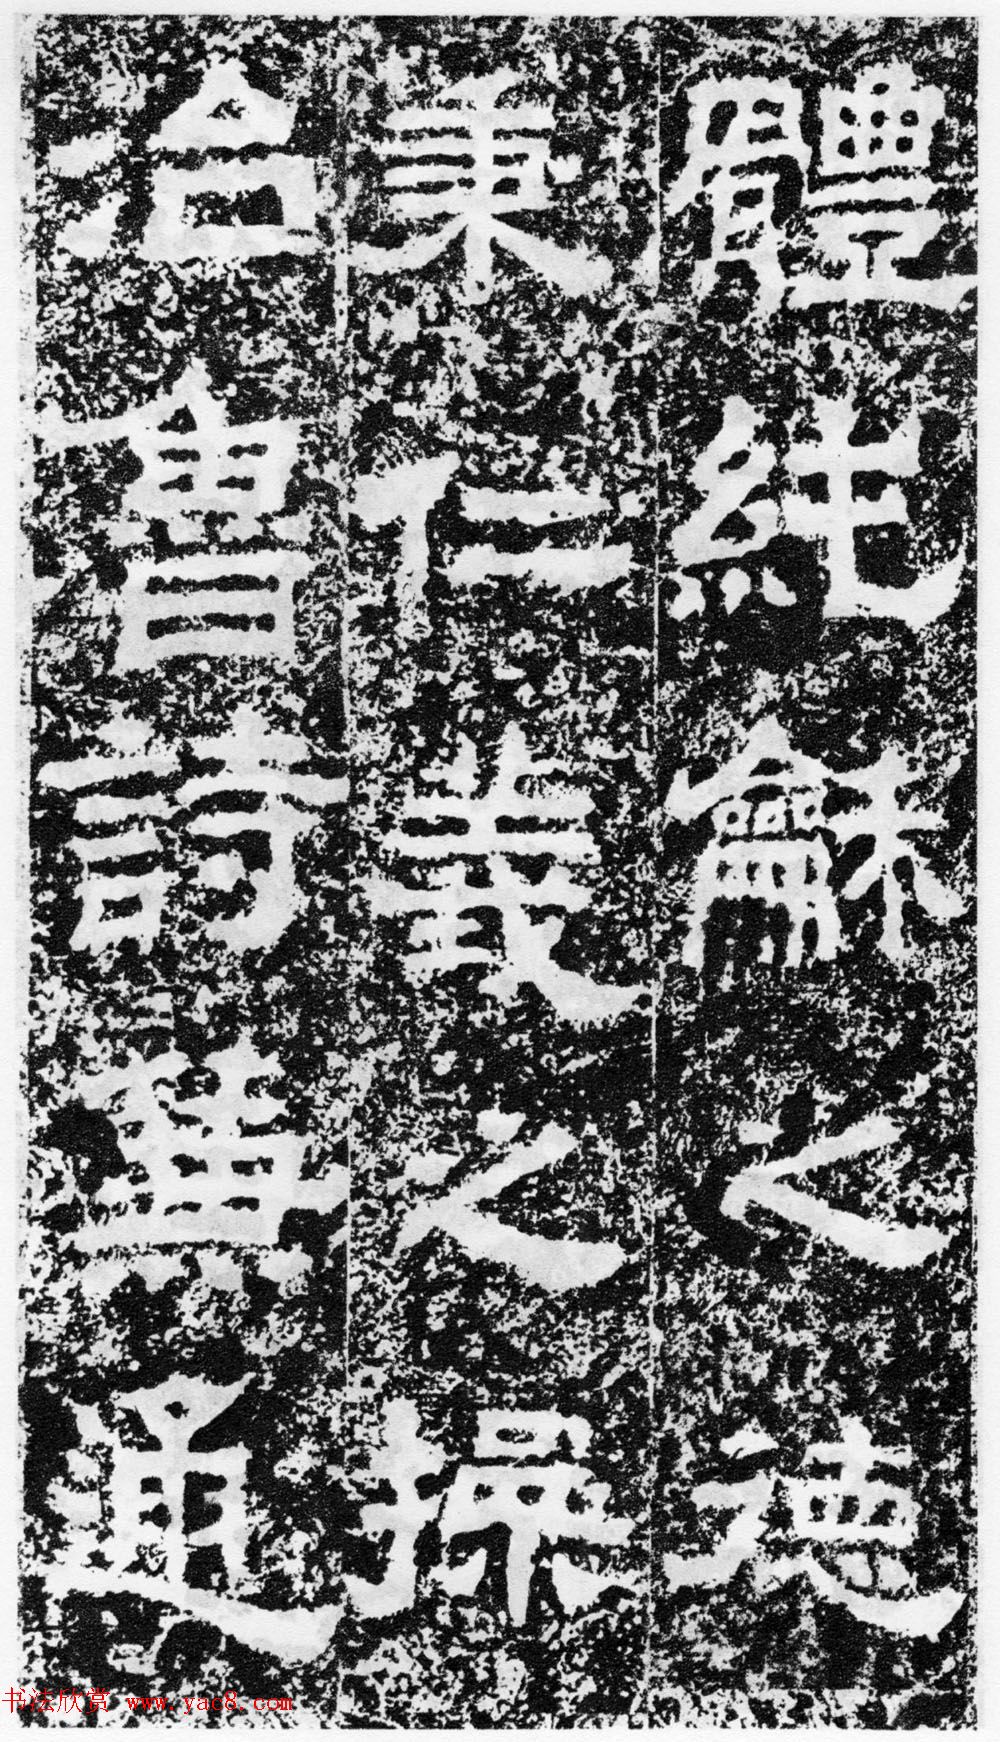 體純龢之德
秉仁義之操
治魯詩兼通
书法欣赏 www.yac8.com